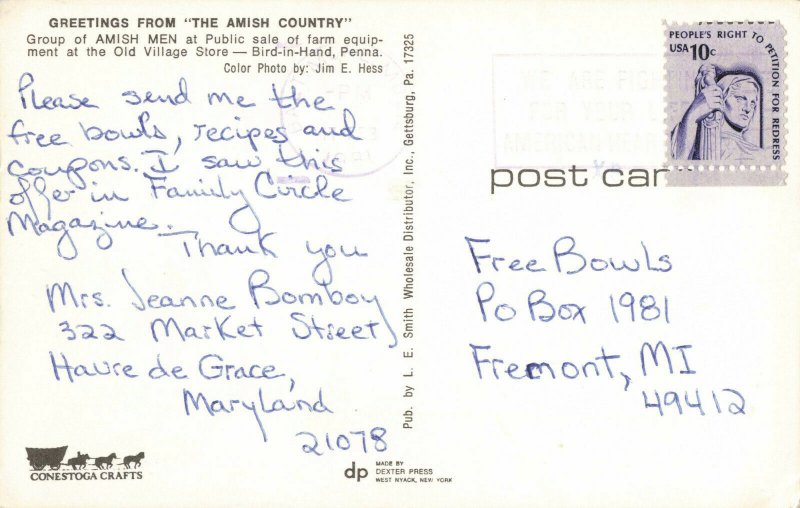 GREETINGS FROM "THE AMISH COUNTRY"
Group of AMISH MEN at Public sale of farm equip-
ment at the Old Village Store — Bird-in-Hand, Penna.
Color Photo by: Jim E. Hess
Please send me the
free bowls, recipes and
coupons. I saw this
offer in Family Circle
Magazine.
Thank you
Mrs. Jeanne Bomboy
322 Market Street
Havre de Grace,
Maryland
21078
CONESTOGA CRAFTS
Pub. by L. E. Smith Wholesale Distributor, Inc., Gettsburg, Pa. 17325
dp
MADE BY
DEXTER PRESS
WEST NYACK, NEW YORK
PEOPLE'S RIGHT TO PETITION FOR REDRESS
USA 10c
WE ARE
FOR YOUR
AMERICAN HEART
post car
Free Bowls
PO Box 1981
Fremont, MI
49412